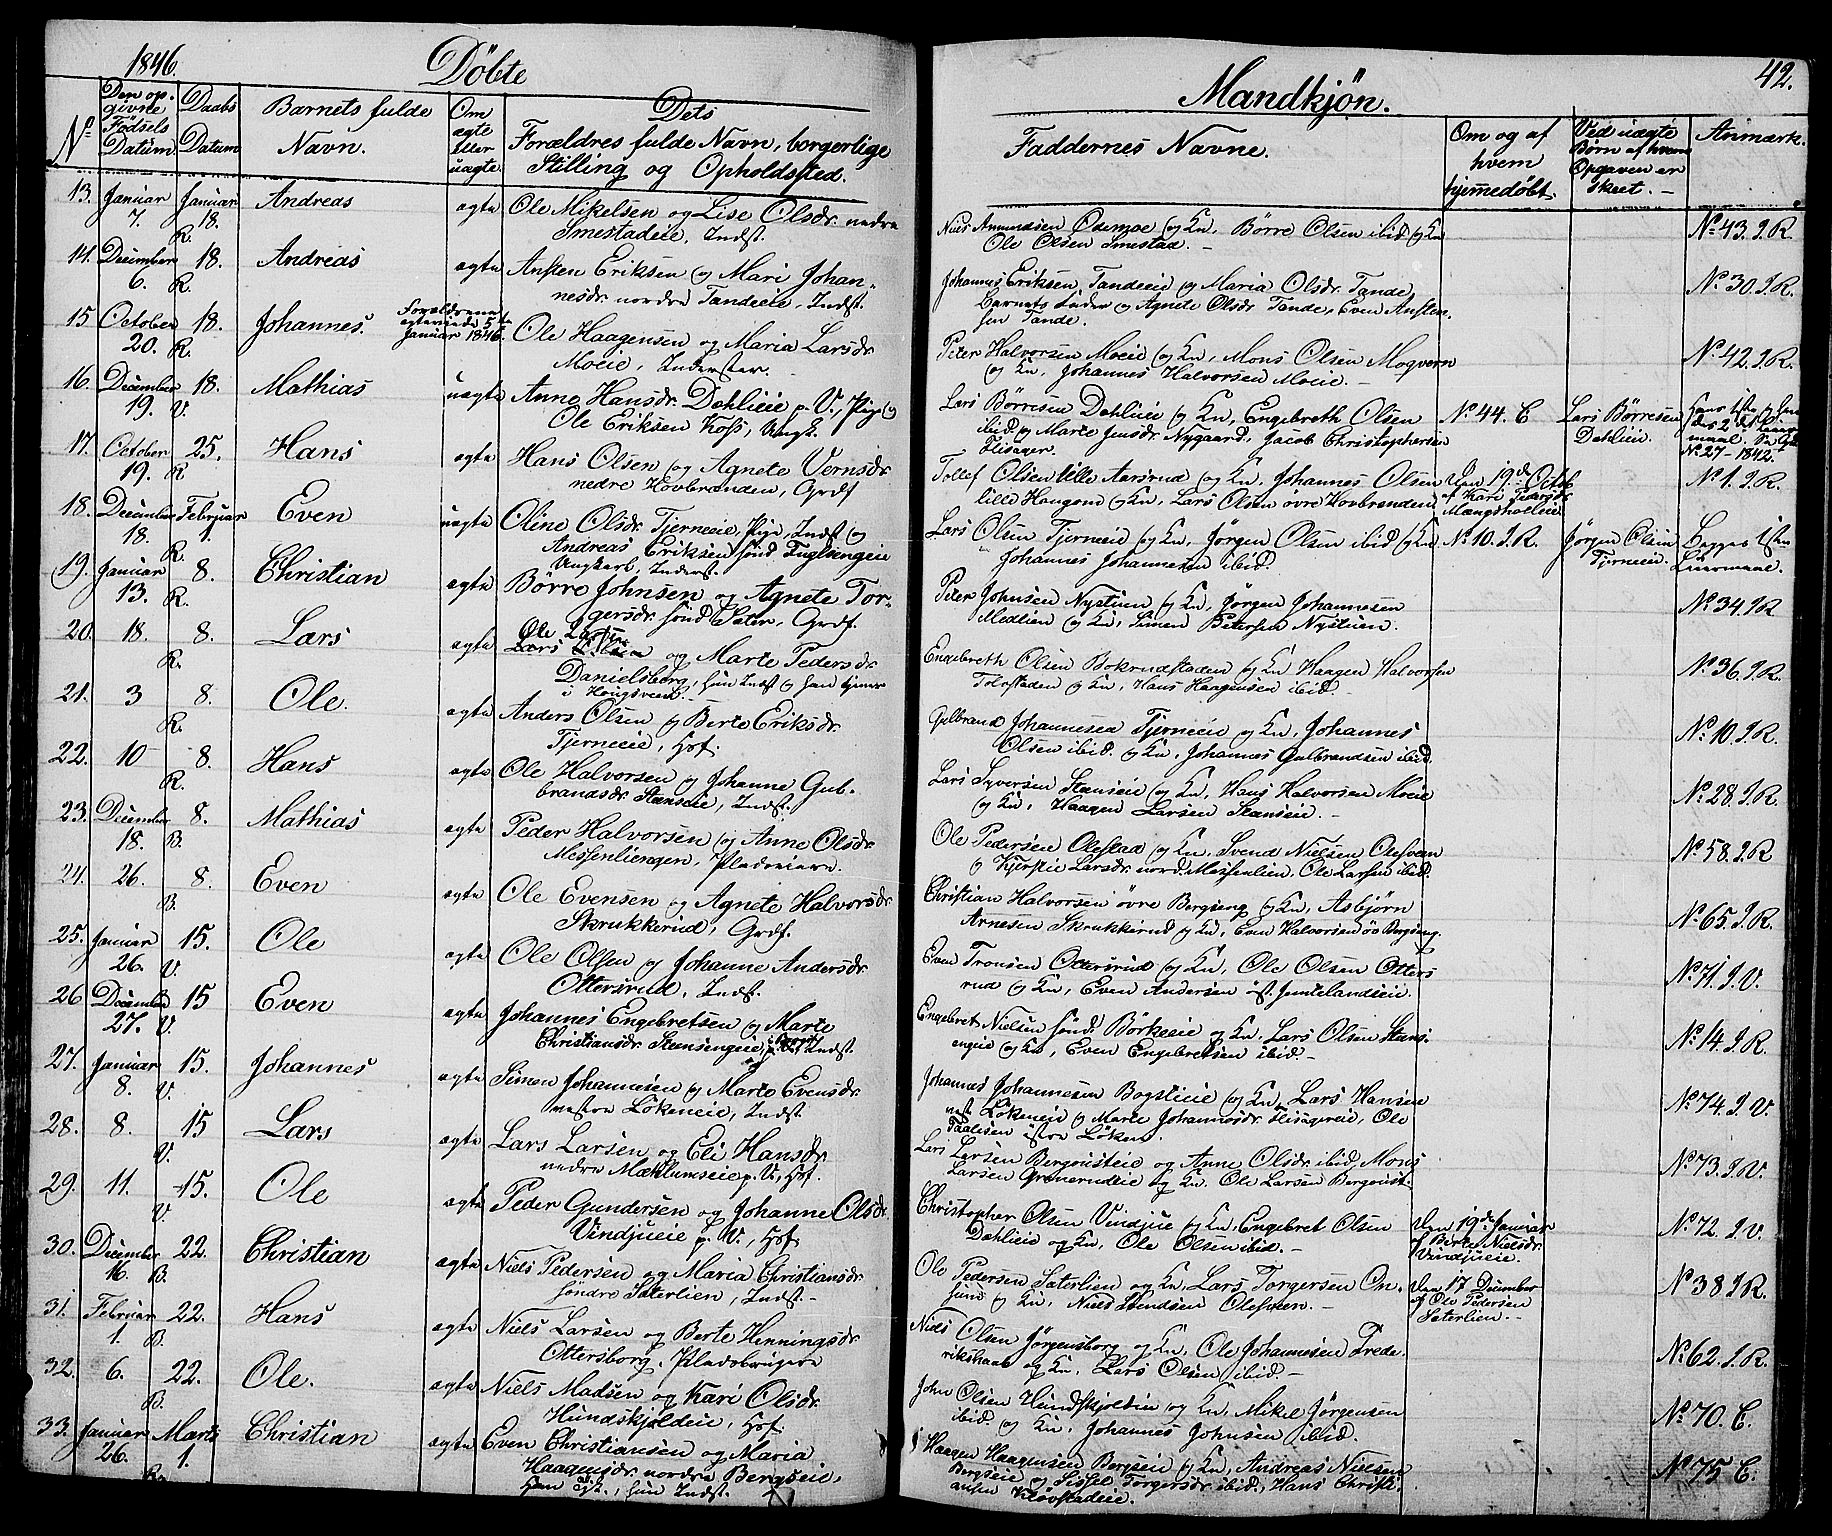 1846.
Döbte
Mandkjön.
42.
No
Den op-
givne
Födsels
Datum
Daabs
Datum
Barnets fulde
Navn.
Om
ægte
eller
uægte.
Dets
Forældres fulde Navn, borgerlige
Stilling og Opholdssted.
Faddernes Navne.
Om og af
hvem
hjemmedöbt.
Ved uægte
Börn af hvem
Opgaven er
skeet.
Anmærk.
13. Januar 7. Januar 18. R. Andreas ægte Ole Mikelsen og Lise Olsdr. nedre
Smestadeie, Indst.
Niels Amundsen Osemoe og Kn, Börre Olsen ibid og Kn
Ole Olsen Smestad.
No 43. I.R.
14. December 6. 18. R. Andreas ægte Ansten Eriksen og Mari Johan-
nesdr. nordre Tandeeie, Indst.
Johannes Eriksen Tandeeie og Maria Olsdr. Tande,
og Agnete Olsdr Tande, Even Ansten-
sen Tande.
No 30. I.R.
15 October 20. 18. R. Johannes.
Forældrene
ægteviede 5te
Januar 1846.
Ole Haagensen og Maria Larsdr.
Moeie, Inderster.
Peter Halvorsen Moeie og Kn, Mons Olsen Mogvern
og Kn, Johannes Halvorsen Moeie.
No 42. I.R.
16. December 19. 18. V. Mathias uægte Anne Hansdr. Dahlieie p. V., Pige og
Ole Eriksen Koss, Ungk.
Lars Börresen Dahlieie og Kn, Engebreth Olsen
ibid og Marte Jensdr. Nygaard, Jacob Christophersen
Flisager.
No 44. C
Lars Börresen
Dahlieie.
No 27 - 1842.
17. October 19. 25. R Hans ægte Hans Olsen og Agnete Vernsdr.
nedre Hovbrænden, Grdf
Tollef Olsen lille Aarsrud og Kn, Johannes Olsen
lille Haugene og Kn, Lars Olsen övre Hovbrænden
Den 19de Octb
af Kari Pedersdr.
Mængshoeleie
No 1. I.R.
18. December 18. Februar 1. R. Even uægte Oline Olsdr. Tjerneeie, Pige, Indst og
Andreas Eriksen sönd Fuglsengeie
Ungkarl, Inderst.
Lars Olsen Tjerneeie og Kn, Jörgen Olsen ibid og Kn
Johannes Johannesen ibid.
No 10. I.R.
Jörgen Olsen
Tjerneeie.
Begges 1ste
Leiermaal.
19. Januar 13. 8. R. Christian ægte Börre Johnsen og Agnete Tor-
gersdr. sönd Sæter, Grdf.
Peter Johnsen Nystuen og Kn, Jörgen Johannesen
Moelien og Kn, Simen Petersen Nystuen.
No 34 I.R
20. 18. 8. R. Lars ægte Ole Larsen
og Marte Pedersdr.
Danielsborg, hun Indst og han tjener
i Hougsveen.
Engebreth Olsen Bokrudstaden og Kn Haagen Halvorsen
Tolvstaden og Kn, Hans Haagensen ibid
No 36. I.R.
21. 3 8. R. Ole. ægte Anders Olsen og Berte Eriksdr.
Tjerneeie, Hsf.
Gulbrand Johannesen Tjerneeie og Kn, Johannes
Olsen ibid. og Kn, Johannes Gulbrandsen ibid.
No 10. I.R.
22. 10 8. R. Hans ægte Ole Halvorsen og Johanne Gub-
brandsdr. Stænseie, Indst.
Lars Syversen Stænseie og Kn, Hans Halvorsen Moeie
og Kn, Haagen Larsen Stænseie.
No 28. I.R.
23. December 18. 8. B. Mathias ægte Peder Halvorsen og Anne Olsdr.
Messenliengen, Pladseiere.
Ole Pedersen Olestad og Kn, Svend Nielsen Olesveen
og Kjerstie Larsdr. nord. Messenlien, Ole Larsen ibid.
No 58. I.R
24. 26. 8. B. Even ægte Ole Evensen og Agnete Halvorsdr.
Skrukkerud, Grdf.
Christian Halvorsen övre Bergseng og Kn, Asbjörn
Arnesen Skrukkerud og Kn, Even Halvorsen öv Bergseng.
No 65. I.R.
25. Januar 26. 15. V. Ole ægte Ole Olsen og Johanne Andersdr.
Ottersrud, Indst.
Even Tronsen Ottersrud og Kn, Ole Olsen Otters
rud og Kn, Even Andersen öst. Jemtelandseie.
No 71. I.V.
26 December 27. 15 V. Even ægte Johannes Engebretsen og Marte
Christiansdr. Steensengeie, Indst.
Engebret Nielsen sönd, Börkeeie og Kn, Lars Olsen Stens-
engeie og Kn, Even Engebretsen ibid.
No 14. I.R.
27. Januar 8. 15. V. Johannes ægte Simen Johannesen og Marte Evensdr.
vestre Lökeneie, Indst.
Johannes Johannesen Bogstieie og Kn, Lars Hansen
vest. Lökeneie og Marte Johannesdr. Flisagereie, Ole
Paalsen östre Löken.
No 74. I.V.
28. 8. 15 V. Lars ægte Lars Larsen og Eli Hansdr.
nedre Mæhlumseie p. V., Hsf.
Lars Larsen Bergvisteie og Anne Olsdr. ibid, Mons
Larsen Grönerudeie og Kn. Ole Larsen Bergvist.
No 73. I.V.
29. 11. 15. V. Ole ægte Peder Gundersen og Johanne Olsdr.
Vindjueie p. V., Hsf.
Christopher Olsen Vindjue og Kn, Engebret Olsen
Dahlieie og Kn, Ole Olsen ibid.
Den 19de Januar
af Berte Nielsdr.
Vindjueie.
No 72. I.V.
30. December 16. 22. B. Christian ægte Niels Pedersen og Maria Christiansdr.
söndre Sæterlien, Indst.
Ole Pedersen Sæterlien og Kn, Lars Torgersen On-
sund og Kn, Niels Svendsen Olesveen.
Den 17 December
af Ole Pedersen
Sæterlien.
No 38 I.R.
31. Februar 1. 22. B. Hans ægte Niels Larsen og Berte Henningsdr.
Ottersborg, Pladsbrugere
Niels Olsen Jörgensborg og Kn, Ole Johannesen Frede-
rikshaab og Kn, Lars Olsen ibid.
No 62. I.R.
32. 6. 22. B. Ole. ægte Niels Madsen og Kari Olsdr.
Hundskjoldeie, Hsf.
John Olsen Hundskjoldeie og Kn, Mikel Jörgensen
ibid. og Kn, Johannes Johnsen ibid.
No 70. C.
33. Januar 26. Marts 1. R. Christian ægte Even Christiansen og Maria
Haagensdr. nordre Bergseie,
hun Indst.
Haagen Haagensen Bergseie og Kn, Andreas Nielsen
Bergseie og Sissel Torgersdr. ibid, Hans Christi-
ansen Klövstadeie.
No 75 C.